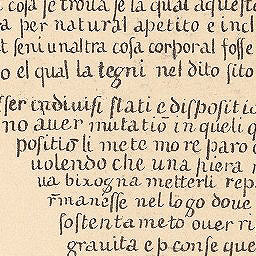 cosa se troua se la qual aqueste
a per natural apetito e incl
t seniunaltra cosa corporal fosse
o el qual la tegni nel dito sito
sser indiuisi stati e dispositio
no auer mutatiō in queli q
positio li mete more paro c
uolendo che una piera r
ua bixogna metterli rep
r̄manesse nel logo doue
sostentameto ouer ri
grauita e p conse que